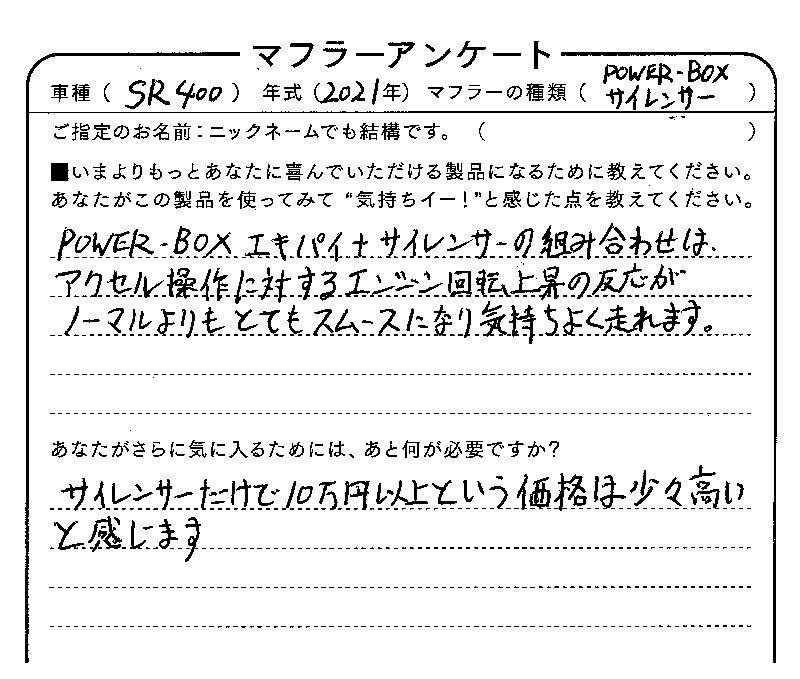 マフラーアンケート
車種（ SR400 ） 年式（2021年） マフラーの種類（ POWER-BOX サイレンサー ）
ご指定のお名前：ニックネームでも結構です。（ ）
■いまよりもっとあなたに喜んでいただける製品になるために教えてください。
あなたがこの製品を使ってみて“気持ちイー！”と感じた点を教えてください。
POWER-BOX エキパイ+サイレンサーの組み合わせは、
アクセル操作に対するエンジン回転上昇の反応が
ノーマルよりもとてもスムースになり気持ちよく走れます。
あなたがさらに気に入るためには、あと何が必要ですか？
サイレンサーだけで10万円以上という価格は少々高い
と感じます